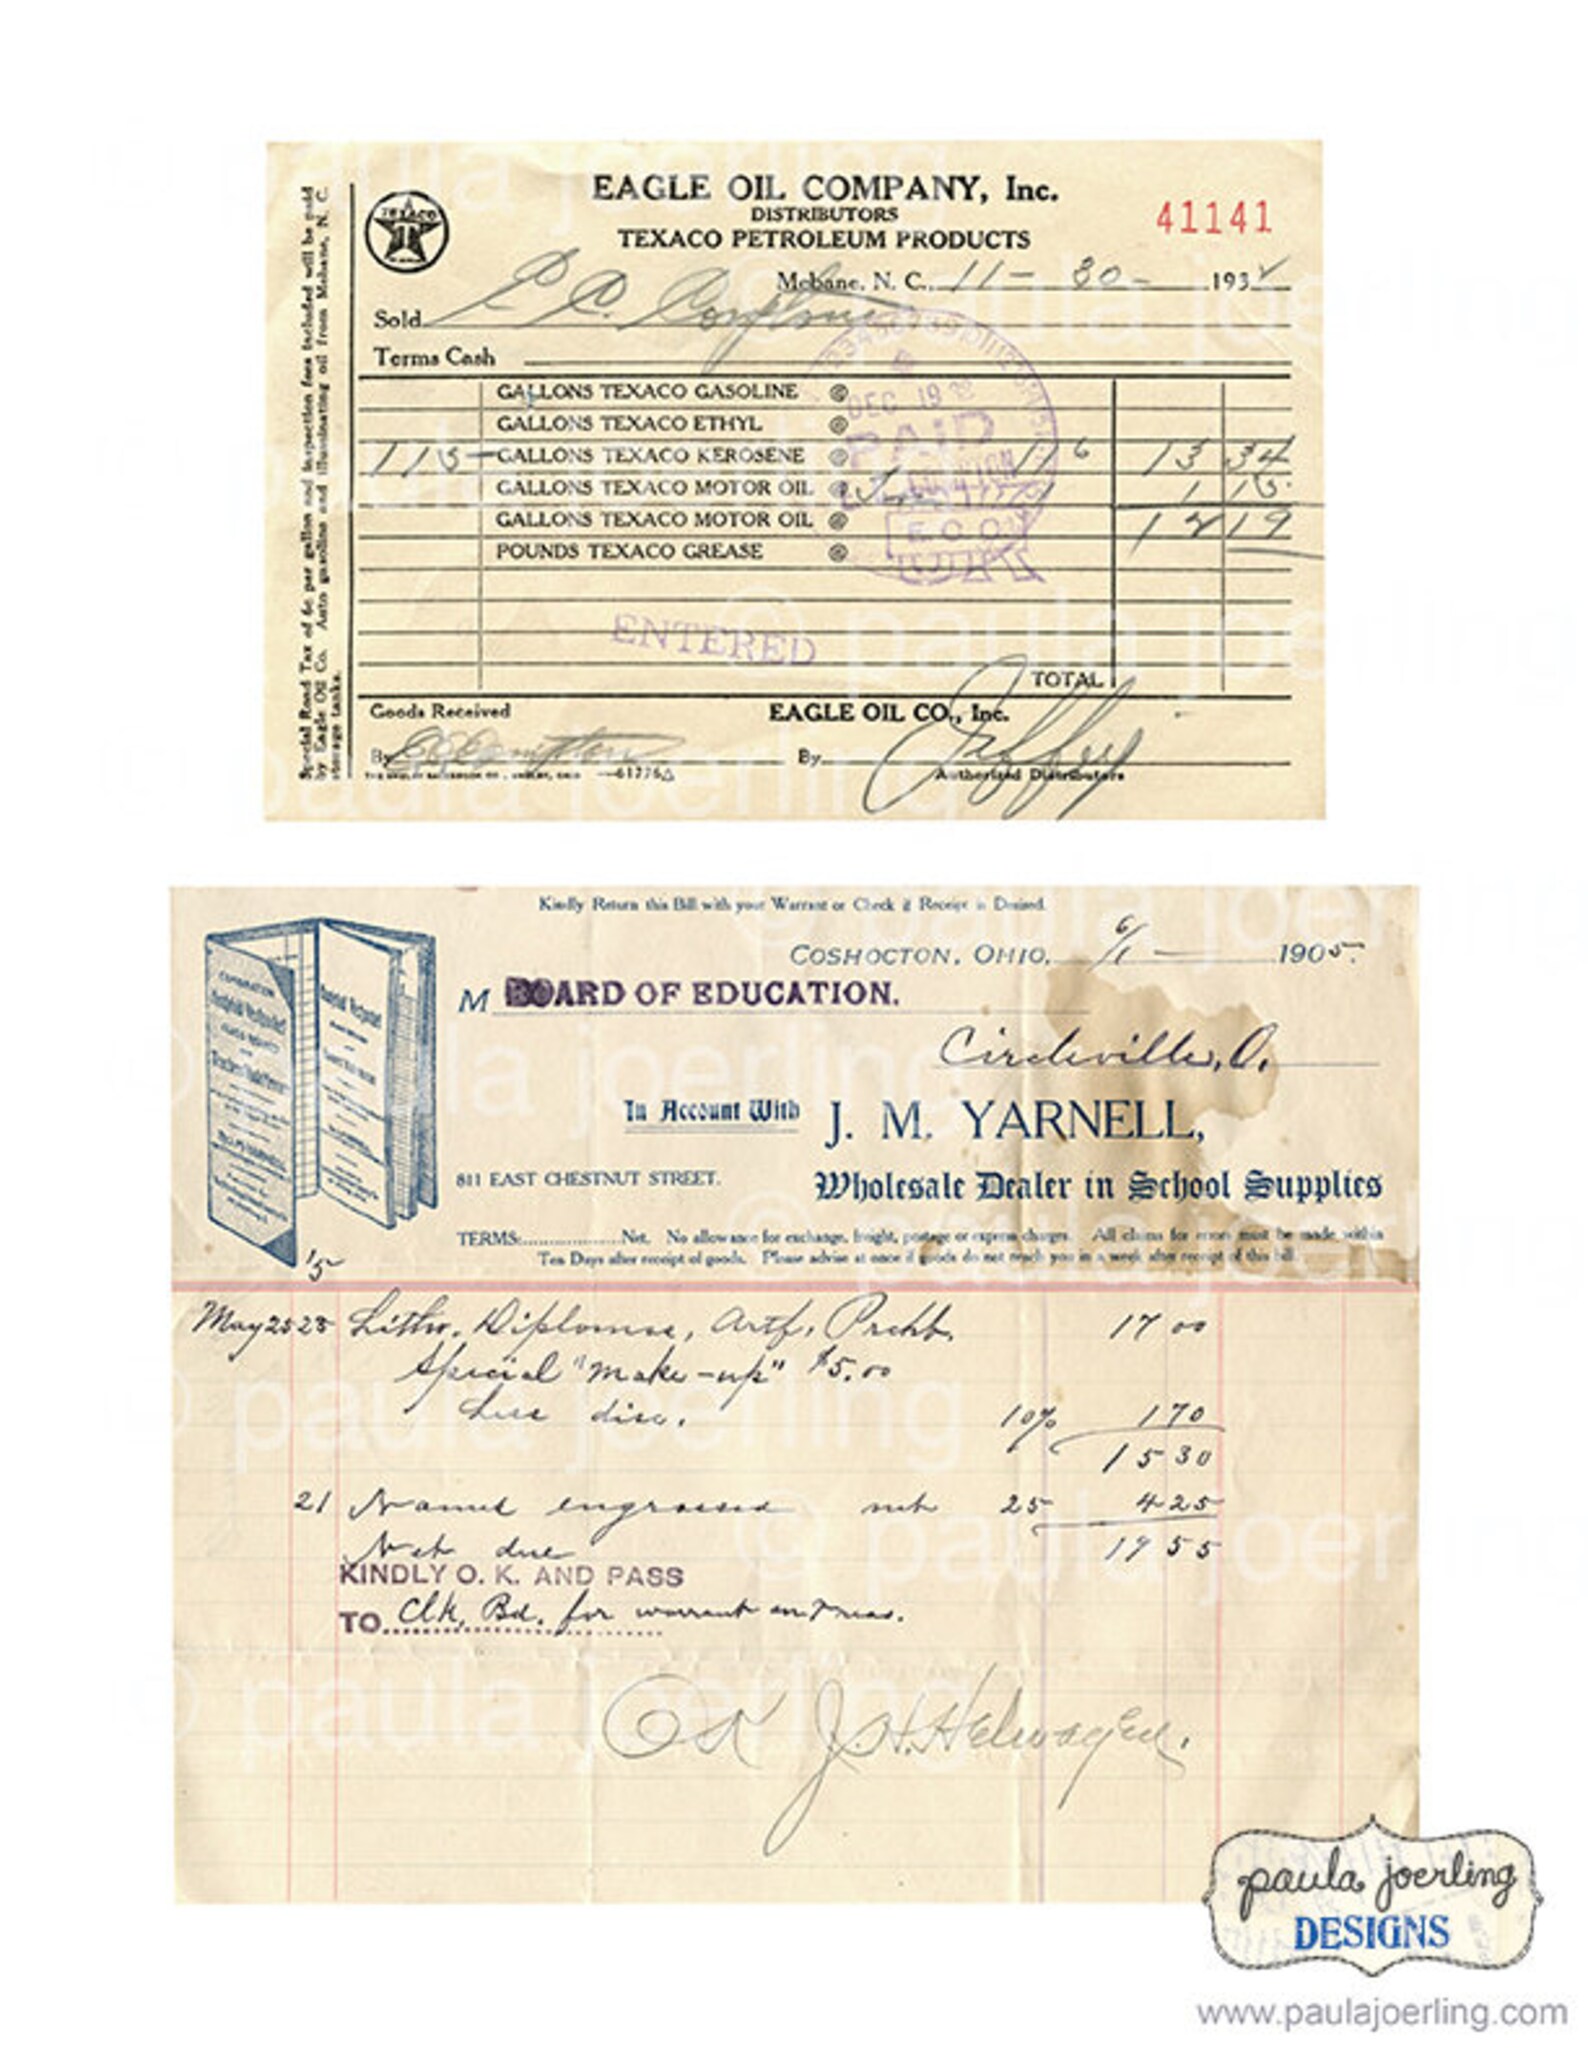 EAGLE OIL COMPANY, Inc.
DISTRIBUTORS
TEXACO PETROLEUM PRODUCTS
41141
TEXACO
T
Mebane, N. C., 11 - 30 - 1932
Sold
Terms Cash
GALLONS TEXACO GASOLINE @
GALLONS TEXACO ETHYL @
115 GALLONS TEXACO KEROSENE @ 11 6 13 34
GALLONS TEXACO MOTOR OIL @ 1 15
GALLONS TEXACO MOTOR OIL @ 14 19
POUNDS TEXACO GREASE @
DEC 19 32
PAID
E. C. C.
ENTERED
TOTAL
Goods Received EAGLE OIL CO., Inc.
By By
Authorized Distributors
61776
Special Road Tax of 6c per gallon and inspection fees included will be paid
by Eagle Oil Co. Auto gasoline and illuminating oil from Mebane, N. C.
storage tanks.
Kindly Return this Bill with your Warrant or Check if Receipt is Desired.
COSHOCTON, OHIO, 6/1 1905.
M BOARD OF EDUCATION.
Circleville, O.
In Account With J. M. YARNELL,
811 EAST CHESTNUT STREET. Wholesale Dealer in School Supplies
TERMS:.................Net. No allowance for exchange, freight, postage or express charges. All claims for errors must be made within
Ten Days after receipt of goods. Please advise at once if goods do not reach you in a week after receipt of this bill.
'5
May 25 25 Litho. Diplomas, Artf. Prcht. 17 00
Special "make-up" $5.00
Less disc. 10% 1 70
15 30
21 Names engrossed net 25 4 25
Net due 19 55
KINDLY O. K. AND PASS
TO Clk. Bd. for warrant on Treas.
OK J. H. Helwagen.
paula joerling
DESIGNS
www.paulajoerling.com
© paula joerling